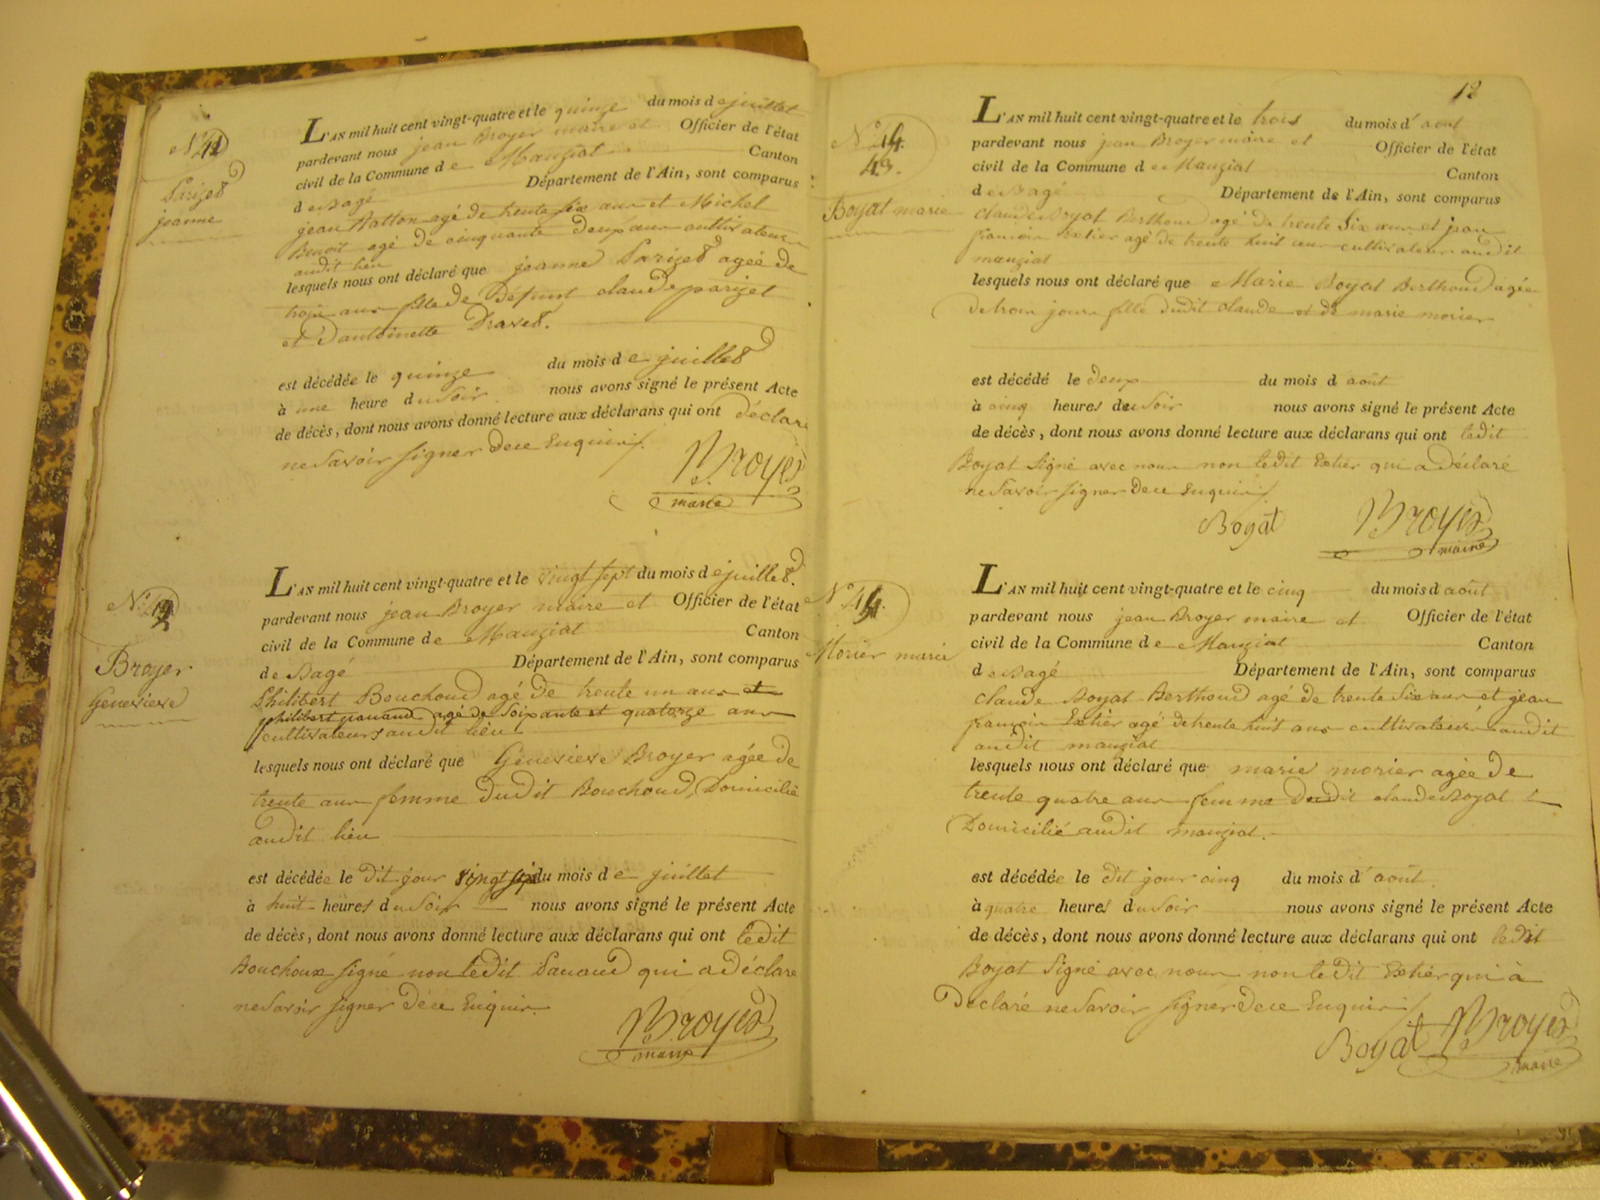 N° 41
Parizet
jeanne
L'AN mil huit cent vingt-quatre et le quinze du mois de juillet
pardevant nous jean Broyer maire et Officier de l'état
civil de la Commune de Manziat Canton
de Bagé Département de l'Ain, sont comparus
jean agé de trente six ans et Michel
Benoit agé de cinquante deux ans cultivateurs
audit lieu
lesquels nous ont déclaré que jeanne Parizet agée de
trois ans fille de Défunt claude parizet
et D'antoinette Dravet.
est décédée le quinze du mois de juillet
à une heure du Soir nous avons signé le présent Acte
de décès, dont nous avons donné lecture aux déclarans qui ont déclaré
ne Savoir signer de ce Enquis
Broyer
maire
N°
Broyer
Genevieve
L'AN mil huit cent vingt-quatre et le vingt sept du mois de juillet.
pardevant nous jean Broyer maire et Officier de l'état
civil de la Commune de Manziat Canton
de Bagé Département de l'Ain, sont comparus
Philibert Bouchoud agé de trente un ans et
philibert pauaud agé de Soixante et quatorze ans
cultivateurs audit lieu
lesquels nous ont déclaré que Genevieve Broyer agée de
trente ans femme Dudit Bouchoud, Domicilié
audit lieu
est décédée le dit jour vingt du mois de juillet
à huit heures du Soir nous avons signé le présent Acte
de décès, dont nous avons donné lecture aux déclarans qui ont ledit
Bouchoux signé non ledit Pauaud qui a déclaré
ne Savoir signer de ce Enquis.
Broyer
maire
12
N°
43.
Boyat marie
L'AN mil huit cent vingt-quatre et le trois du mois d'août
pardevant nous jean Broyer maire et Officier de l'état
civil de la Commune de Manziat Canton
de Bagé Département de l'Ain, sont comparus
claude Boyat Berthoud agé de trente Six ans et jean
françois Extier agé de trente huit ans cultivateurs audit
manziat
lesquels nous ont déclaré que Marie Boyat Berthoud agée
de trois jours fille Dudit claude et de marie morier
est décédé le deux du mois d août
à cinq heures du Soir nous avons signé le présent Acte
de décès, dont nous avons donné lecture aux déclarans qui ont ledit
Boyat Signé avec nous non ledit Extier qui a déclaré
ne Savoir signer de ce Enquis
Boyat Broyer
maire
N° 44.
Morier marie
L'AN mil huit cent vingt-quatre et le cinq du mois d août
pardevant nous jean Broyer maire et Officier de l'état
civil de la Commune de Manziat Canton
de Bagé Département de l'Ain, sont comparus
claude Boyat Berthoud agé de trente Six ans et jean
françois Extier agé de trente huit ans cultivateurs audit
audit manziat
lesquels nous ont déclaré que marie morier agée De
trente quatre ans femme Dudit claude Boyat
Domicilié audit manziat.
est décédée le dit jour cinq du mois d'août
à quatre heures du Soir nous avons signé le présent Acte
de décès, dont nous avons donné lecture aux déclarans qui ont ledit
Boyat Signé avec nous non ledit Extier qui à
Declaré ne Savoir signer de ce Enquis
Boyat Broyer
maire